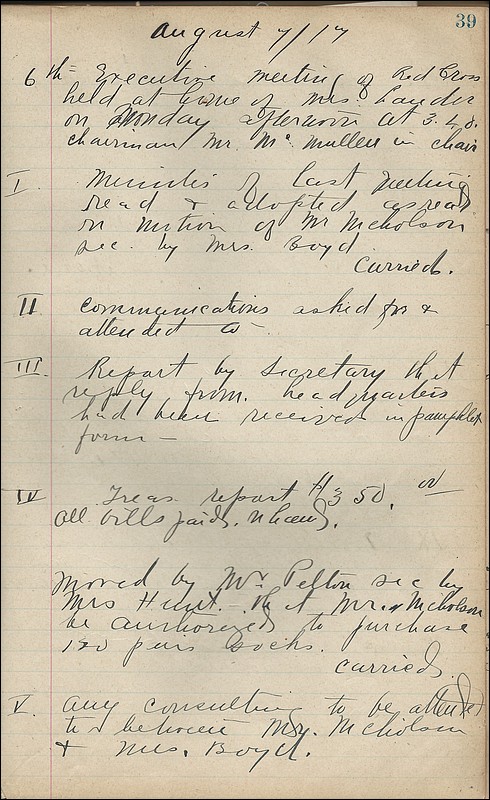 39
August 7/17
6th Executive meeting of Red Cross
held at home of Mrs. Lauder
on Monday afternoon at 3.40.
chairman Mr. Mc Mullen in chair
I. Minutes of last meeting
read & adopted as read
on motion of Mr Nicholson
sec. by Mrs. Boyd
carried.
II communications asked for &
attended to
III. Report by Secretary that
reply from headquarters
had been received in pamphlet
form —
IV Treas. report $350.
all bills paid.
Moved by Mr. Pelton sec by
Mrs Hunt - that Mr. Nicholson
be authorized to purchase
120 pairs Socks.
carried.
V. any consulting to be attended
to between Nicholson
& Mrs. Boyd.